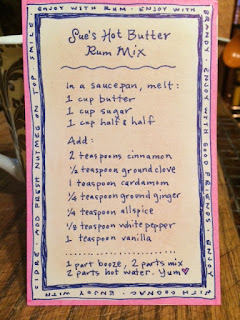 ENJOY WITH RUM · ENJOY WITH
BRANDY · ENJOY WITH GOOD FRIENDS · ENJOY
WITH COGNAC · ENJOY WITH
CIDRE · ADD FRESH NUTMEG ON TOP SMILE
Sue's Hot Butter
Rum Mix
In a saucepan, melt:
1 cup butter
1 cup sugar
1 cup half & half
Add:
2 teaspoons cinnamon
½ teaspoon ground clove
1 teaspoon cardamom
¼ teaspoon ground ginger
¼ teaspoon allspice
⅛ teaspoon white pepper
1 teaspoon vanilla
1 part booze, 2 parts mix
2 parts hot water. Yum♡